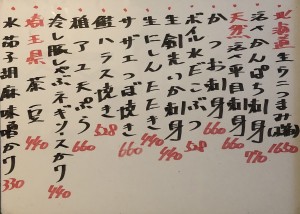 北海道 生ウニつまみ(塩) 1650
活〆かんぱち刺身 770
天然 活〆平目刺身 660
かつお刺身 660
ボイル水だこぶつ 528
生剣先いか刺身 440
生にしんたたき 440
サザエつぼ焼き 660
鮭ハラス焼き 528
稚アユ天ぷら 660
冷し豚しゃぶネギソースかけ 440
埼玉県 茶豆 440
水茄子胡麻味噌かけ 330